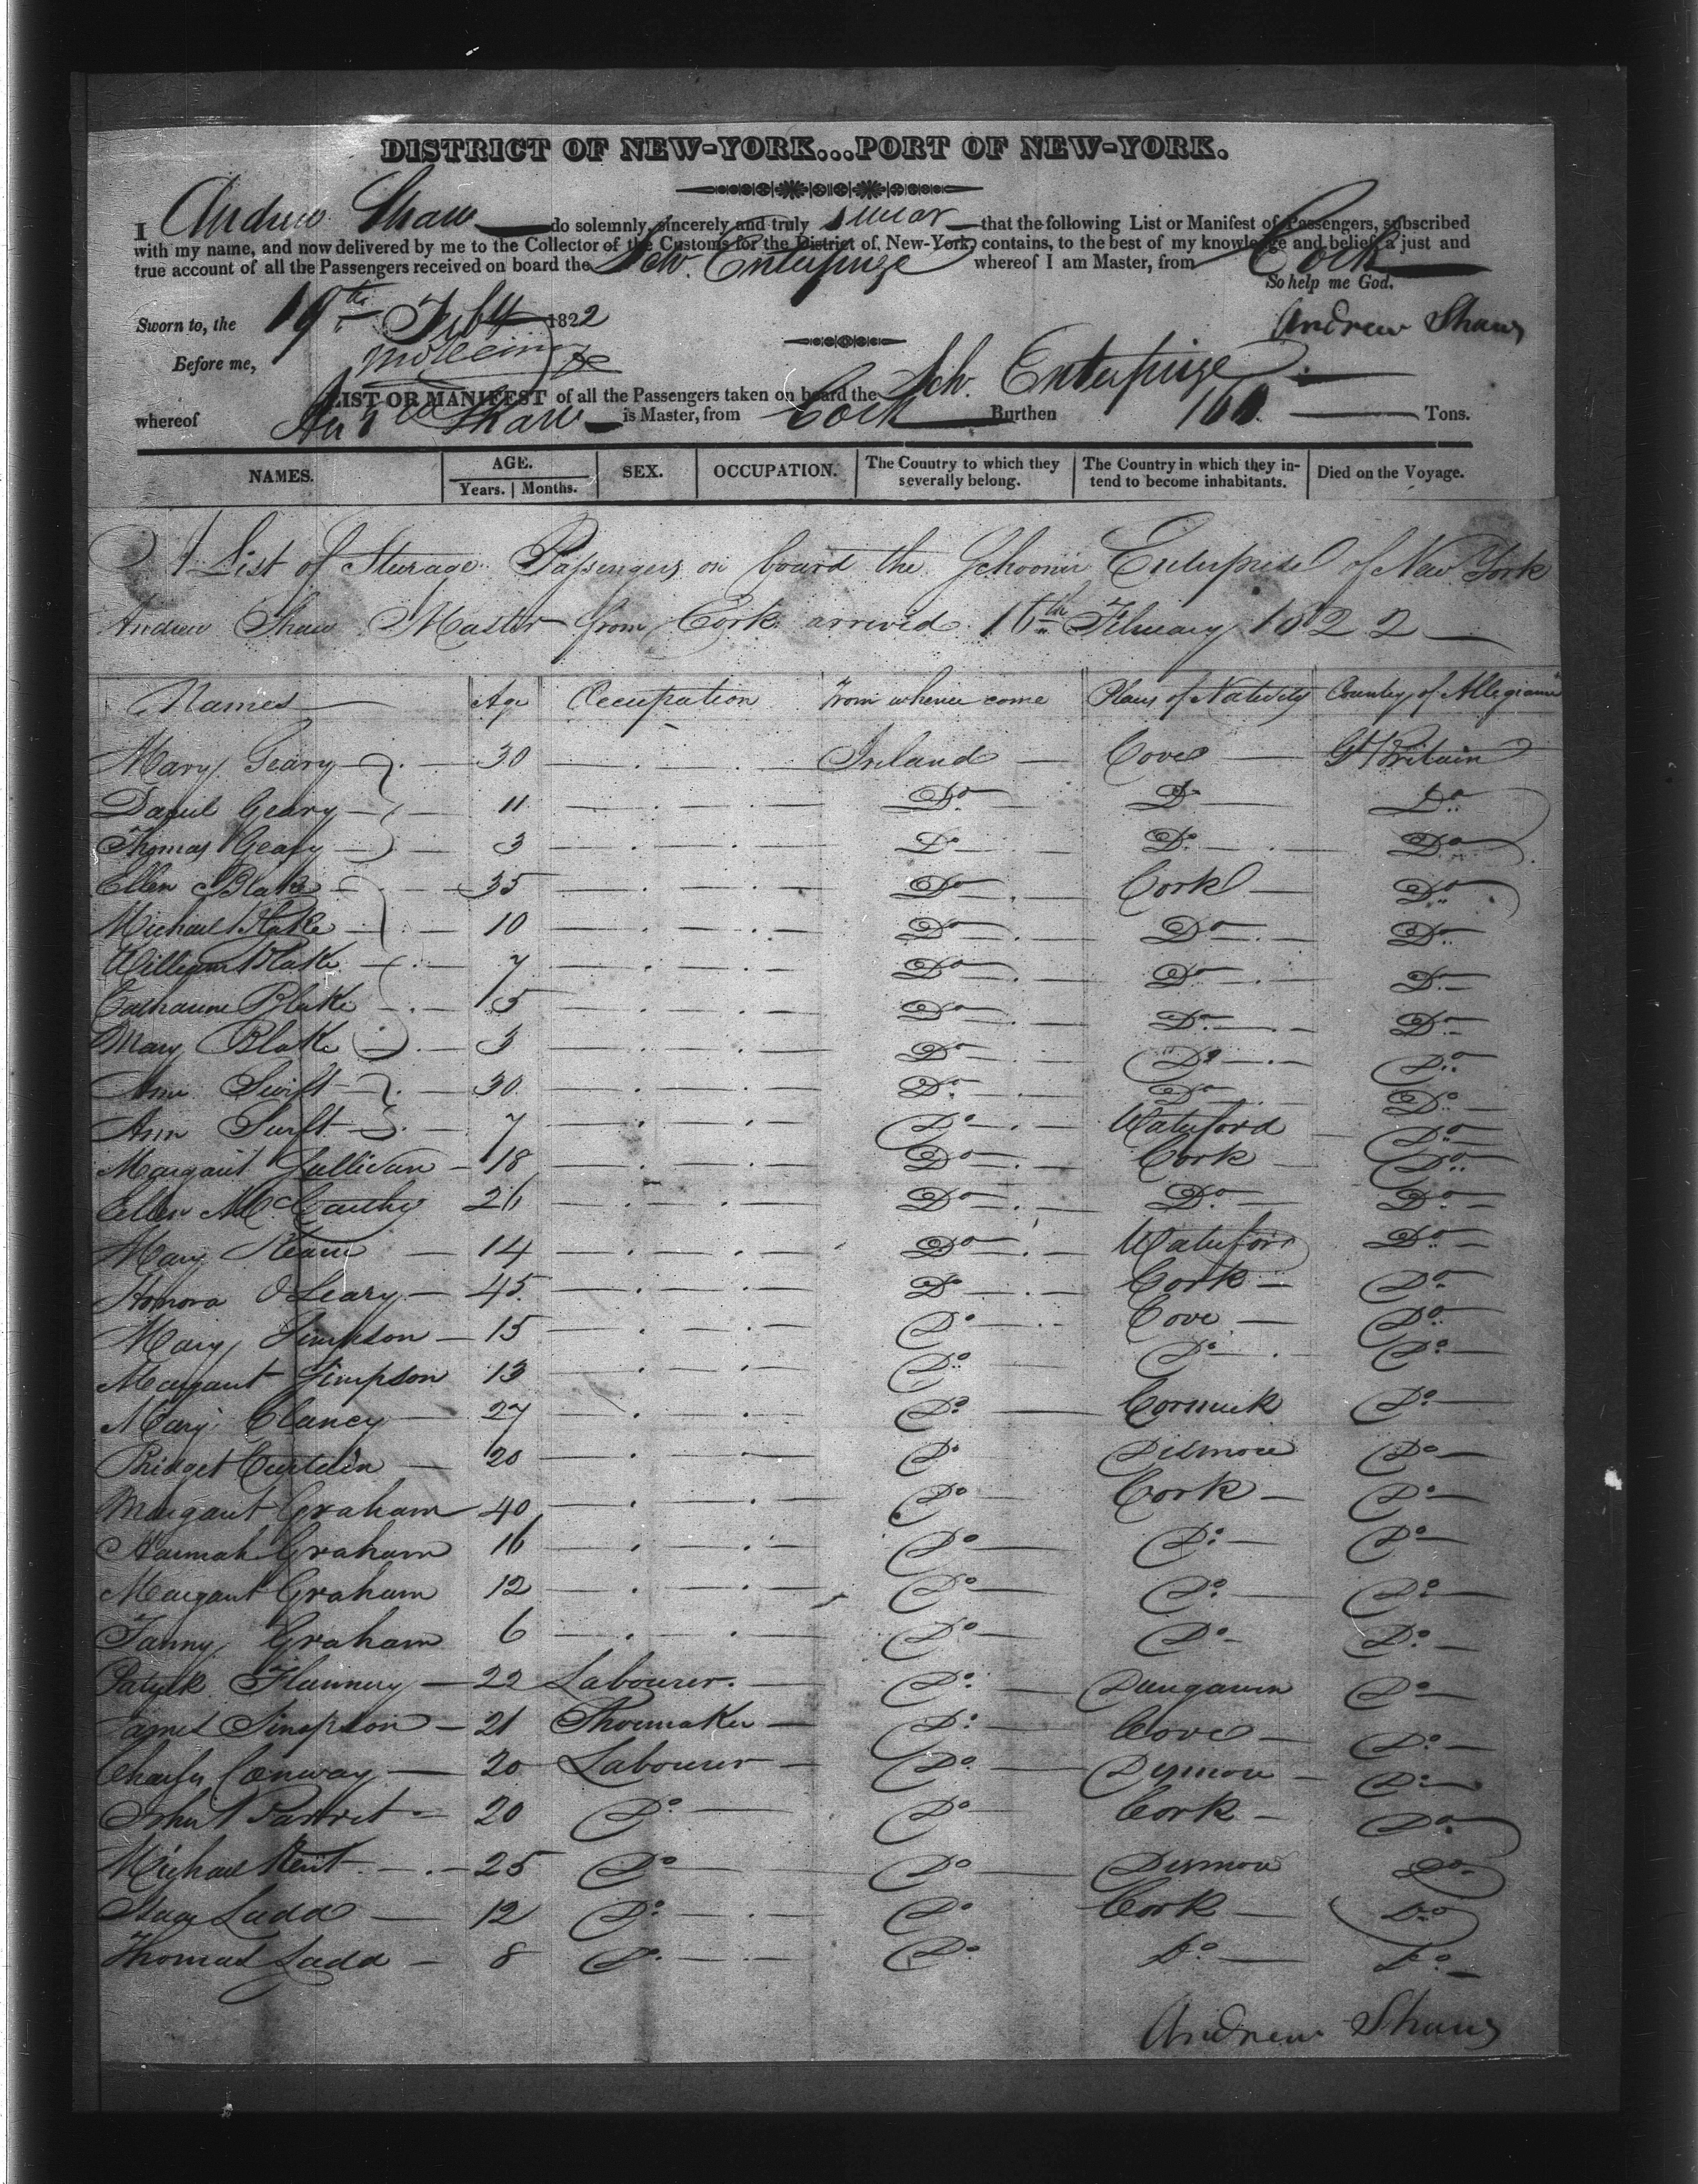 DISTRICT OF NEW-YORK...PORT OF NEW-YORK.
I Andrew Shaw do solemnly, sincerely and truly swear that the following List or Manifest of Passengers, subscribed
with my name, and now delivered by me to the Collector of the Customs for the District of New-York, contains, to the best of my knowledge and belief, a just and
true account of all the Passengers received on board the Sch. Enterprize whereof I am Master, from Cork
So help me God.
Sworn to, the 19th Feby 1822 Andrew Shaw
Before me,
LIST OR MANIFEST of all the Passengers taken on board the Sch. Enterprize
whereof Andw Shaw is Master, from Cork Burthen 160 Tons.
NAMES. AGE. Years. Months. SEX. OCCUPATION. The Country to which they severally belong. The Country in which they intend to become inhabitants. Died on the Voyage.
A List of Sturage Passengers on board the Schooner Enterprise of New York
Andrew Shaw Master from Cork arrived 16th February 1822
Names Age Occupation From whence come Place of Nativity Country of Allegiance
Mary Geary 30 Ireland Cove Gt Britain
Daniel Geary 11 Do Do Do
Thomas Geary 3 Do Do Do
Ellen Blake 35 Do Cork Do
Michael Blake 10 Do Do Do
William Blake 7 Do Do Do
Catharine Blake 5 Do Do Do
Mary Blake 3 Do Do Do
Ann Swift 30 Do Do Do
Ann Swift 7 Do Waterford Do
Margaret Sullivan 18 Do Cork Do
Ellen McCarthy 26 Do Do Do
Mary 14 Do Waterford Do
Honora O Leary 45 Do Cork Do
Mary Simpson 15 Do Cove Do
Margaret Simpson 13 Do Do Do
Mary Clancy 27 Do Do
Bridget 20 Do Do
Margaret Graham 40 Do Cork Do
Hannah Graham 16 Do Do Do
Margaret Graham 12 Do Do Do
Fanny Graham 6 Do Do Do
Patrick Flannery 22 Labourer Do Dungarvin Do
James Simpson 21 Shoemaker Do Cove Do
Charles Conway 20 Labourer Do Do
John 20 Do Do Cork Do
Michael Kent 25 Do Do Do
Ladd 12 Do Do Cork Do
Thomas Ladd 8 Do Do Do Do
Andrew Shaw